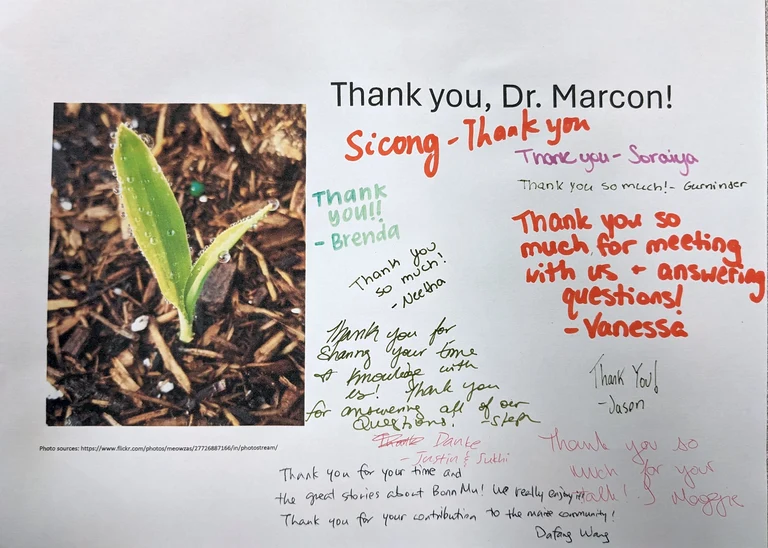 Thank you, Dr. Marcon!
Sicong - Thank you
Thank you - Soraiya
Thank you so much! - Gurninder
Thank
you!!
- Brenda
Thank you
so much!
- Neetha
Thank you so
much for meeting
with us + answering
questions!
- Vanessa
Thank you for
sharing your time
& knowledge with
us! Thank you
for answering all of our
Questions! - Steph
Thank You!
- Jason
Danke
- Justin & Sukhi
Thank you so
much for your
talk! Maggie
Photo sources: https://www.flickr.com/photos/meowzas/27726887166/in/photostream/
Thank you for your time and
the great stories about Bonn Mu! We really enjoy it
Thank you for your contribution to the maize community!
Dafang Wang